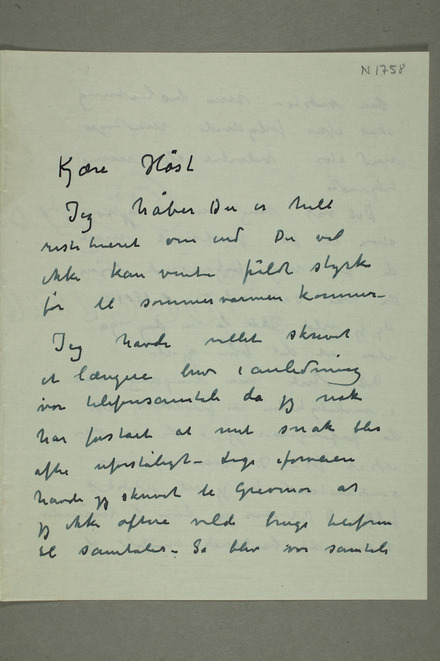 N 1758
Kjære Höst
Jeg håber Du er helt
restitueret om end Du vel
ikke kan vente fuldt styrke
för til sommervarmen kommer.
Jeg havde villet skrevet
et længere brev i anledning
vor telefonsamtale da jeg nok
har forstået at mit snak blir
ofte uforståligt.
havde jeg skrevet til at
jeg ikke oftere vilde bruge telefonen
til samtaler. Så blev vor samtale